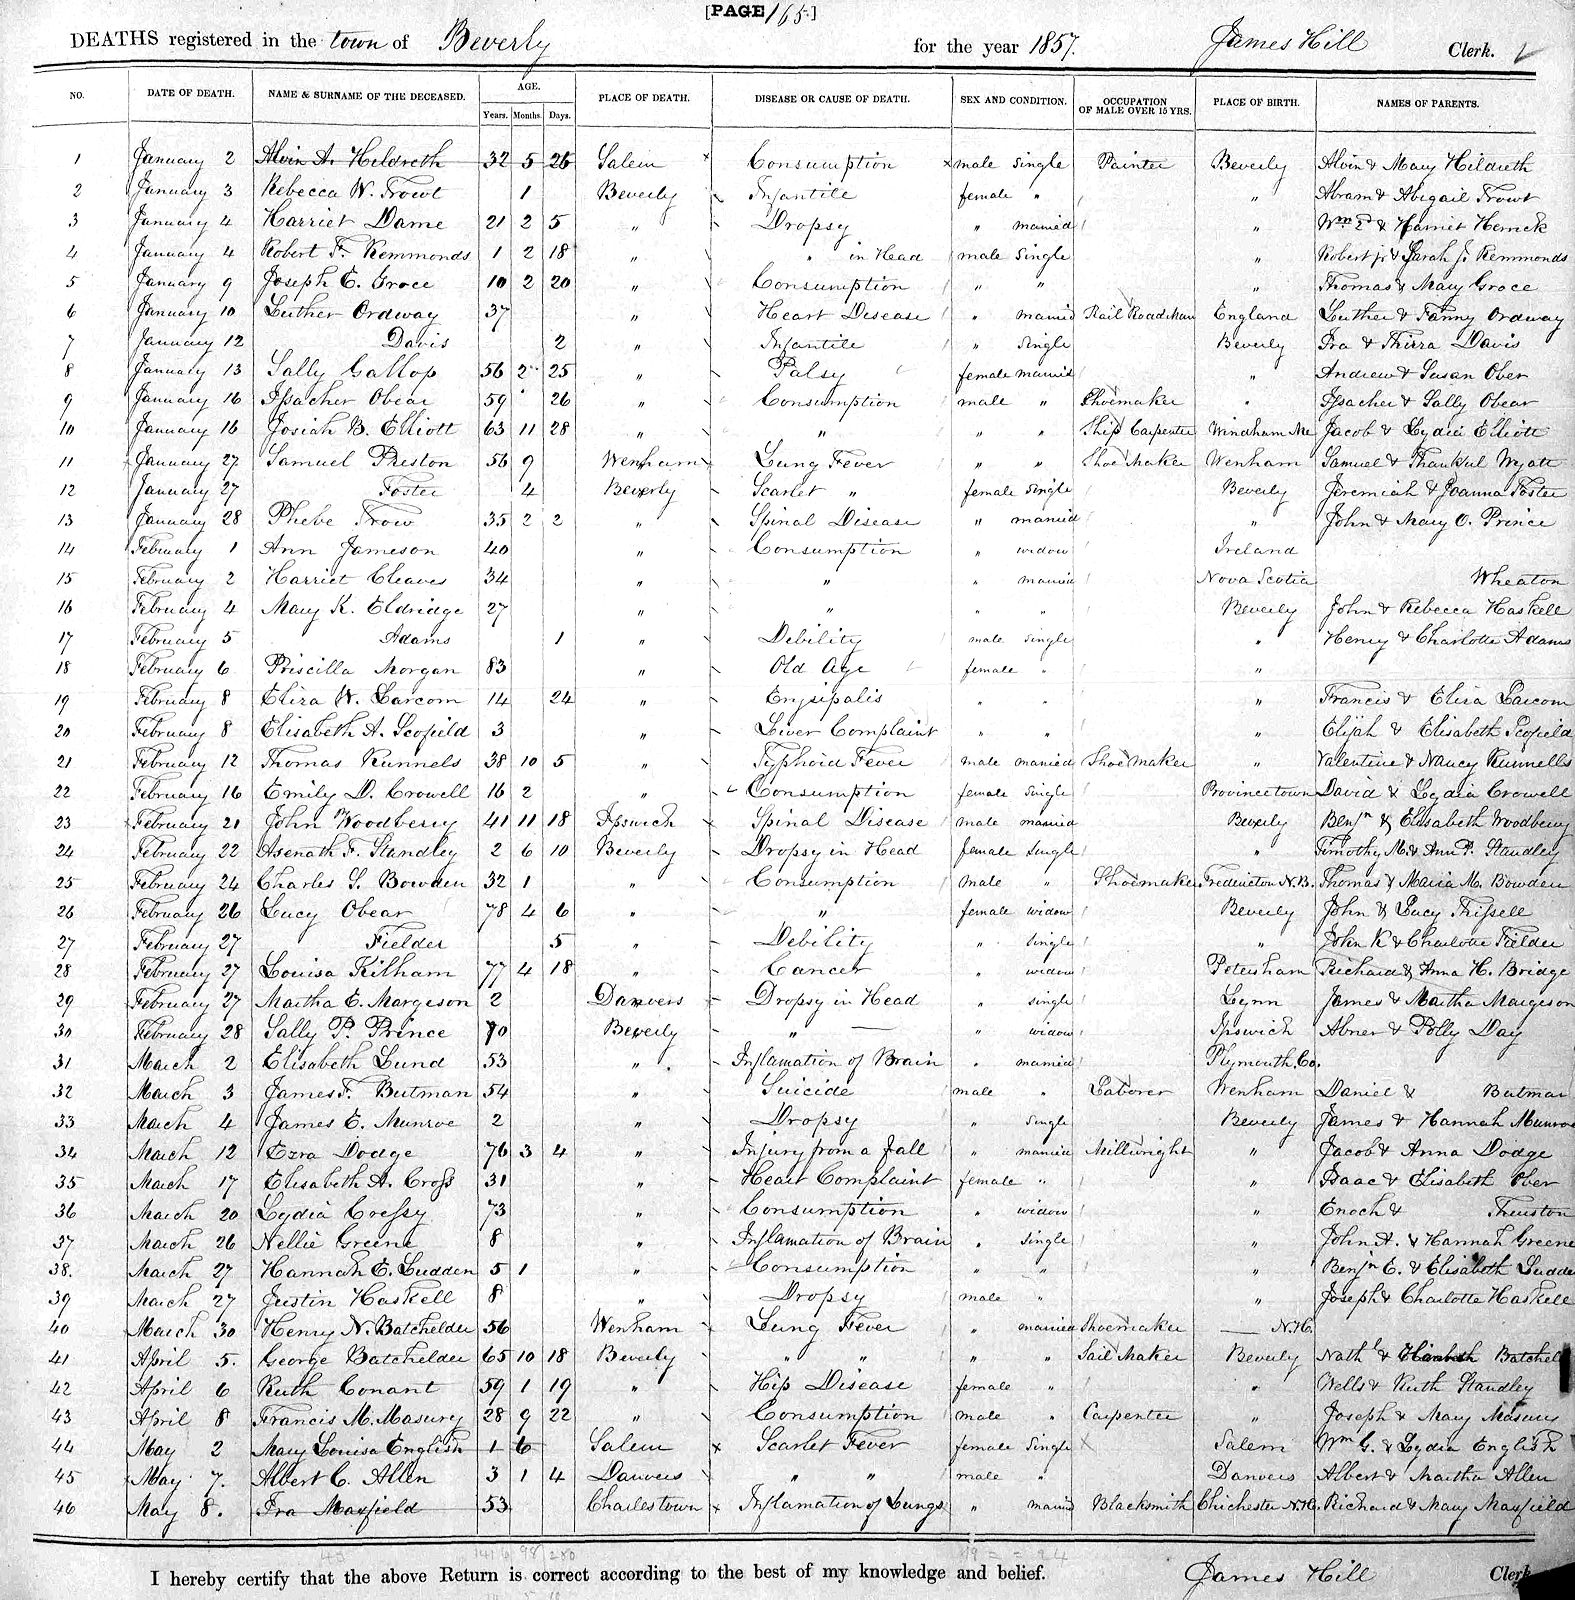 [PAGE 165.]
DEATHS registered in the town of Beverly for the year 1857. James Hill Clerk.
NO. DATE OF DEATH. NAME & SURNAME OF THE DECEASED. AGE. PLACE OF DEATH. DISEASE OR CAUSE OF DEATH. SEX AND CONDITION. OCCUPATION OF MALE OVER 15 YRS. PLACE OF BIRTH. NAMES OF PARENTS.
Years. Months. Days.
1 January 2 Alvin A. Hildreth 32 5 26 Salem Consumption male single Painter Beverly Alvin & Mary Hildreth
2 January 3 Rebecca W. Trowt 1 Beverly Infantile female " " Abram & Abigail Trowt
3 January 4 Harriet Dame 21 2 5 " Dropsy " married " Wm & Harriet Herrick
4 January 4 Robert F. Remmonds 1 2 18 " " in Head male single " Robert jr & Sarah J. Remmonds
5 January 9 Joseph E. Groce 10 2 20 " Consumption " " " Thomas & Mary Groce
6 January 10 Luther Ordway 37 " Heart Disease " married Rail Road Man England Luther & Fanny Ordway
7 January 12 Davis 2 " Infantile " single Beverly Ira & Thirza Davis
8 January 13 Sally Gallop 56 2 25 " Palsy female married " Andrew & Susan Ober
9 January 16 Issacher Obear 59 26 " Consumption male " Shoemaker " Issacher & Sally Obear
10 January 16 Josiah B. Elliott 63 11 28 " " " " Ship Carpenter Windham Me Jacob & Lydia Elliott
11 January 27 Samuel Preston 56 9 Wenham Lung Fever " " Shoe Maker Wenham Samuel & Thankul Wyatt
12 January 27 Foster 4 Beverly Scarlet " female single Beverly Jeremiah & Joanna Foster
13 January 28 Phebe Trow 35 2 2 " Spinal Disease " married " John & Mary O. Prince
14 February 1 Ann Jameson 40 " Consumption " widow Ireland
15 February 2 Harriet Cleaves 34 " " " married Nova Scotia Wheaton
16 February 4 Mary K. Eldridge 27 " " " " Beverly John & Rebecca Haskell
17 February 5 Adams 1 " Debility male single " Henry & Charlotte Adams
18 February 6 Priscilla Morgan 83 " Old Age female " "
19 February 8 Eliza W. Larcom 14 24 " Erysipalis " " " Francis & Eliza Larcom
20 February 8 Elisabeth A. Scofield 3 " Liver Complaint " " " Elijah & Elisabeth Scofield
21 February 12 Thomas Runnels 38 10 5 " Typhoid Fever male married Shoe Maker " Valentine & Nancy Runnells
22 February 16 Emily D. Crowell 16 2 " Consumption female single Provincetown David & Lydia Crowell
23 February 21 John Woodberry 41 11 18 Ipswich Spinal Disease male married Beverly Benjn & Elisabeth Woodberry
24 February 22 Asenath F. Standley 2 6 10 Beverly Dropsy in Head female single " Timothy M. & Ann P. Standley
25 February 24 Charles S. Bowden 32 1 " Consumption male " Shoemaker Fredericton N.B. Thomas & Maria M. Bowden
26 February 26 Lucy Obear 78 4 6 " " female widow Beverly John & Lucy Thissell
27 February 27 Fielder 5 " Debility " single " John K & Charlotte Fielder
28 February 27 Louisa Kilham 77 4 18 " Cancer " widow Petersham Richard & Anna H. Bridge
29 February 27 Martha E. Margeson 2 Danvers Dropsy in Head " single Lynn James & Martha Margeson
30 February 28 Sally P. Prince 70 Beverly " — " widow Ipswich Abner & Polly Day
31 March 2 Elisabeth Lund 53 " Inflamation of Brain " married Plymouth Co.
32 March 3 James F. Butman 54 " Suicide male " Laborer Wenham Daniel & Butman
33 March 4 James E. Munroe 2 " Dropsy " single Beverly James & Hannah Munroe
34 March 12 Ezra Dodge 76 3 4 " Injury from a fall " married Millwright " Jacob & Anna Dodge
35 March 17 Elisabeth A. Cross 31 " Heart Complaint female " " Isaac & Elisabeth Ober
36 March 20 Lydia Cressy 73 " Consumption " widow " Enoch & Thurston
37 March 26 Nellie Greene 8 " Inflamation of Brain " single " John A. & Hannah Greene
38. March 27 Hannah E. Ludden 5 1 " Consumption " " " Benjn E. & Elisabeth Ludde
39 March 27 Justin Haskell 8 " Dropsy male " " Joseph & Charlotte Haskell
40 March 30 Henry N. Batchelder 56 Wenham Lung Fever " married Shoemaker — N.H.
41 April 5. George Batchelder 65 10 18 Beverly " " " " Sail Maker Beverly Nathl & Batchel
42 April 6 Ruth Conant 59 1 19 " Hip Disease female " " Wells & Ruth Standley
43 April 8 Francis M. Masury 28 9 22 " Consumption male " Carpenter " Joseph & Mary Masury
44 May 2 Mary Louisa English 1 6 Salem Scarlet Fever female Single Salem Wm G. & Lydia English
45 May 7. Albert C. Allen 3 1 4 Danvers " " male " Danvers Albert & Martha Allen
46 May 8. Ira Maxfield 53 Charlestown Inflamation of Lungs " married Blacksmith Chichester N.H. Richard & Mary Maxfield
I hereby certify that the above Return is correct according to the best of my knowledge and belief. James Hill Clerk